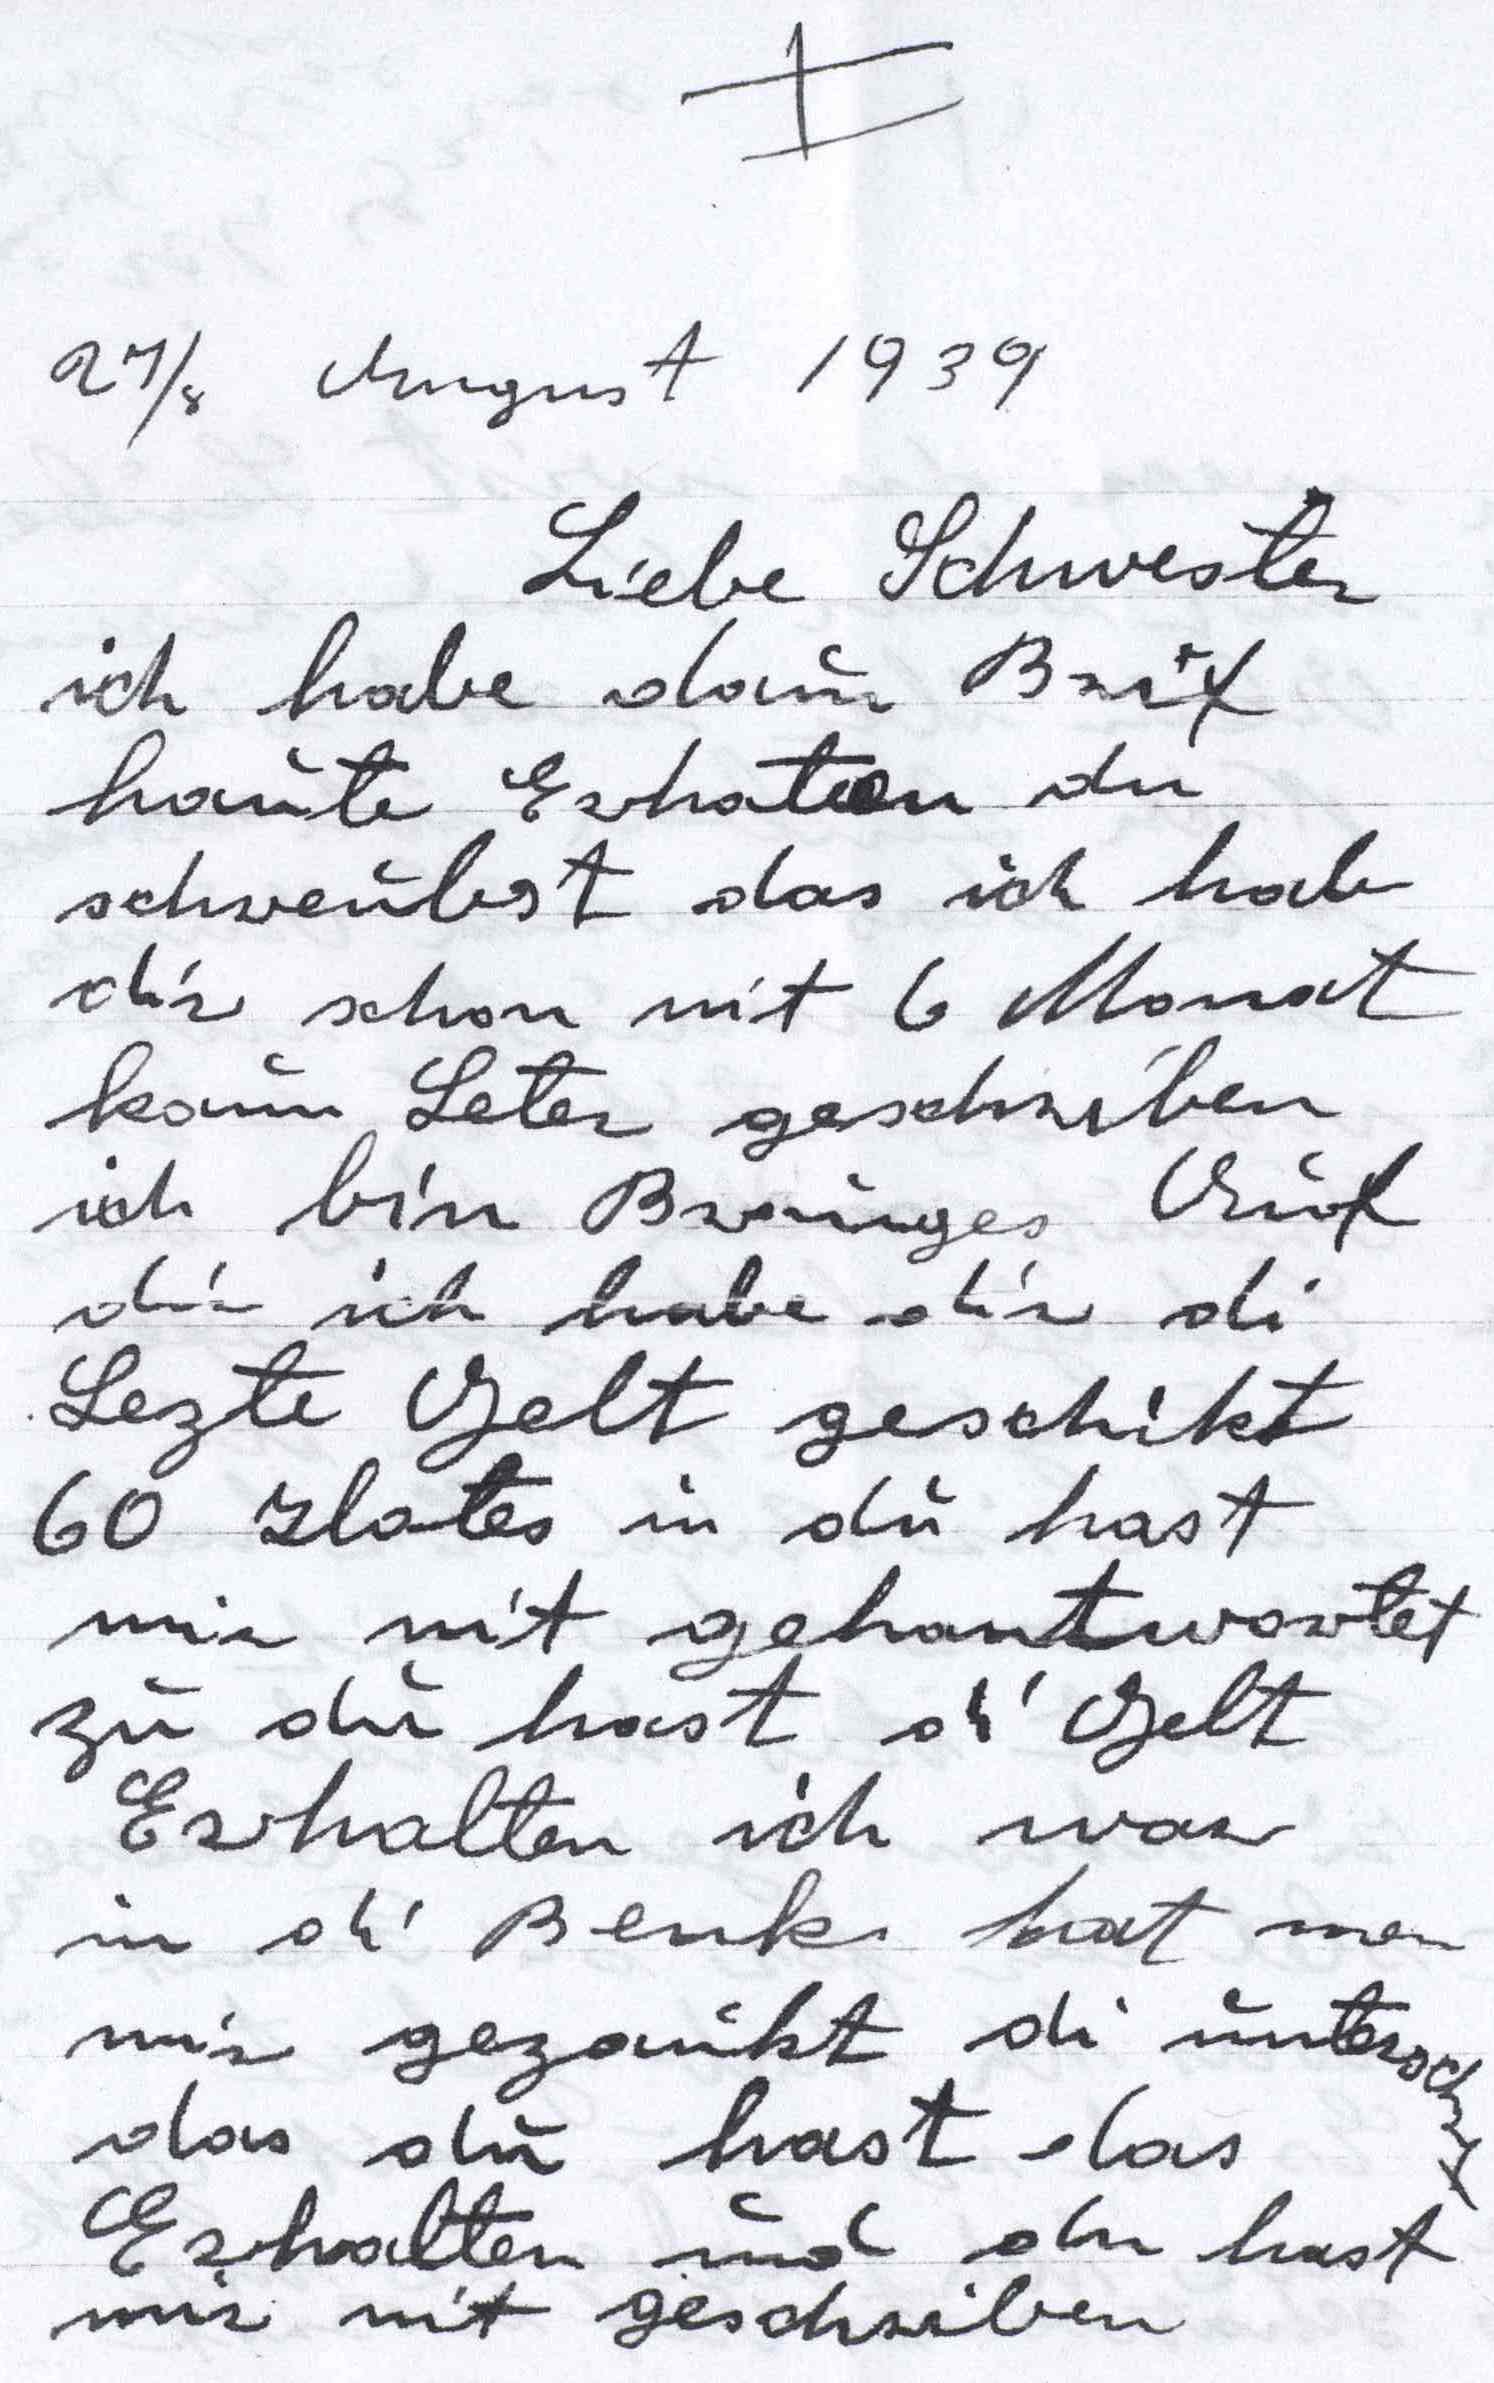 27/8 August 1939
Liebe Schwester
ich habe dain Brif
haute Erhaten du
schreubst das ich hab
dir schon nit 6 Monat
kain Leter geschriben
ich bin Brauges Auf
dir ich habe dir di
Lezte Gelt geschikt
60 zlotes in dŭ hast
mir nit gehantwortet
zŭ dŭ hast di Gelt
Erhalten ich war
in di Benk hat men
mir gezaukt di ŭnterschrift
das dŭ hast das
Erhalten ŭnd du hast
mir nit geschriben